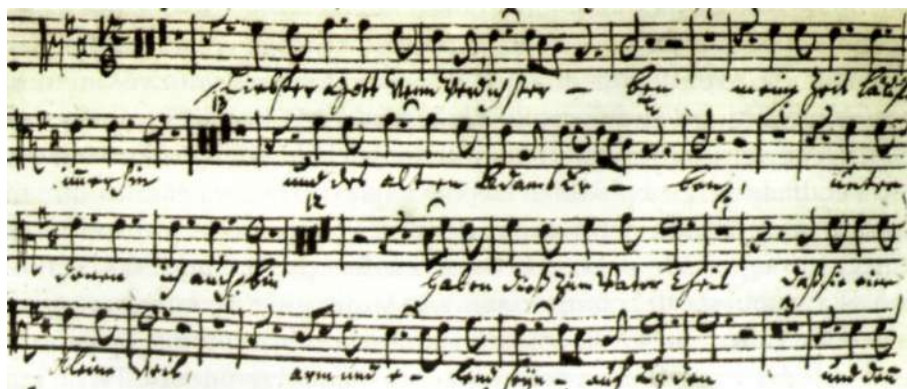 Liebster Gott Wenn Werd ich ster - ben meine Zeit läufft
13
immer hin und des alten Adams Er - ben unter
12
denen ich auch bin haben dieß zum Vater Theil daß sie eine
3
kleine Weil arm und e - lend seyn - auf Erden und dan